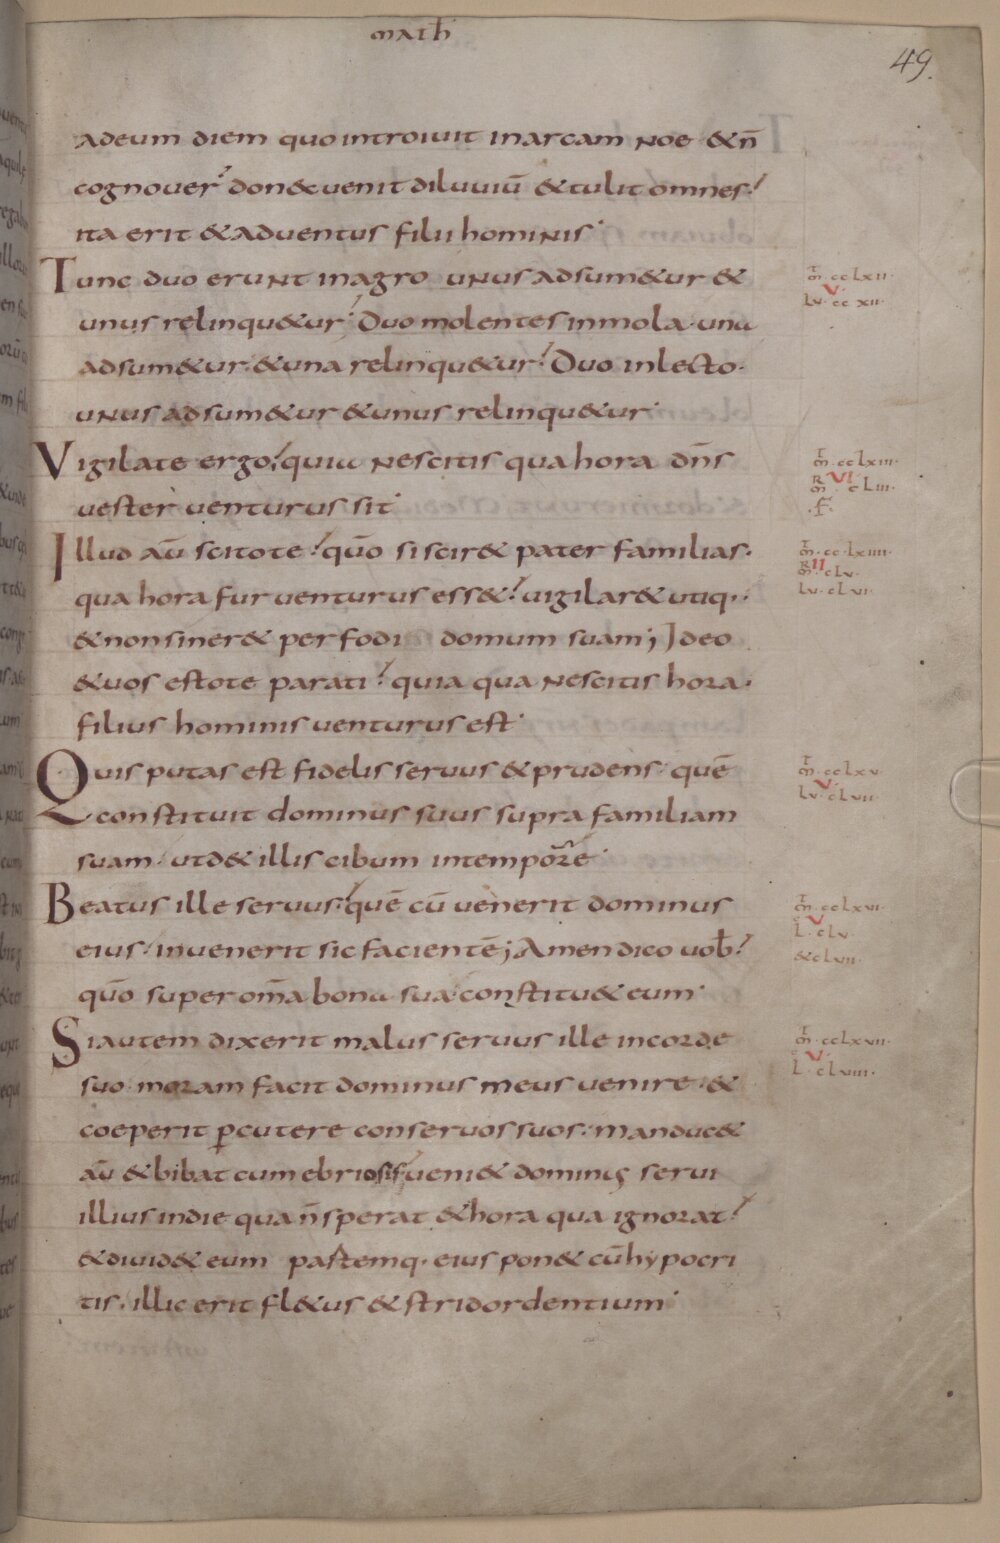 math
49.
adeum diem quo introiuit in arcam noe &n̄
cognouer̄ donec uenit diluuiū & tulit omnes.
ita erit & aduentus filii hominis.
Tunc duo erunt in agro unus adsum&ur &
unus relinqu&ur. Duo molentes in mola. una
adsum&ur. & una relinqu&ur. Duo in lecto.
unus adsum&ur & unus relinqu&ur.
Vigilate ergo. quia nescitis qua hora dn̄s
uester uenturus sit.
Illud aū scitote. quō si scir& pater familias.
qua hora fur uenturus ess&. uigilar& utiq..
& non siner& perfodi domum suam; Ideo
&uos estote parati. quia qua nescitis hora.
filius hominis uenturus est.
Quis putas est fidelis seruus & prudens. quē
constituit dominus suus supra familiam
suam. ut d& illis cibum in tempore.
Beatus ille seruus. quē cū uenerit dominus
eius. inuenerit sic facientē; Amen dico uob̄.
quō super om̄a bona sua constitu& eum.
Si autem dixerit malus seruus ille in corde
suo. moram facit dominus meus uenire. &
coeperit ꝑcutere conseruos suos. manduc&
aū & bibat cum ebriosis. ueni& dominus serui
illius in die qua n̄ sperat & hora qua ignorat.
& diuid& eum partemq. eius pon& cū hypocri
tis. illic erit fl&us & stridor dentium.
m̄. cclxii.
V
lu. ccxii.
m̄. cclxiii.
VI
R
m̄ clii.
.F.
m̄. cclxiiii.
R II
m̄. clv.
lu. clvi.
m̄. cclxv
V
lu. clvii.
m̄. cclxvi.
V
l. clv.
&clvii.
m̄. cclxvii.
V
l. clviii.